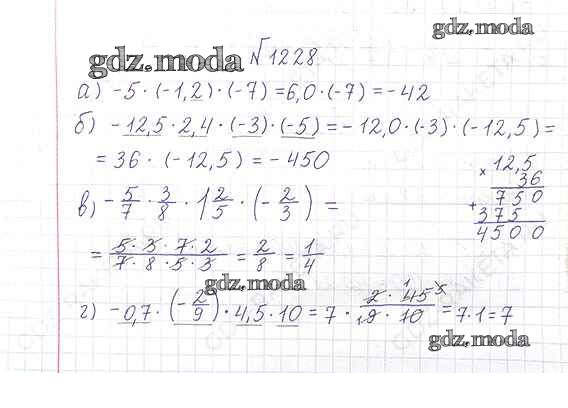 gdz.moda
gdz.moda №1228.
а) -5 · (-1,2) · (-7) = 6,0 · (-7) = -42
б) -12,5 · 2,4 · (-3) · (-5) = -12,0 · (-3) · (-12,5) =
= 36 · (-12,5) = -450
× 12,5
36
+ 750
375
4500
в) -5/7 · 3/8 · 1 2/5 · (-2/3) =
= 5·3·7·2/7·8·5·3 = 2/8 = 1/4
gdz.moda
г) -0,7 · (-2/9) · 4,5 · 10 = 7 · 2 · 45/9 · 10 = 7·1=7
gdz.moda